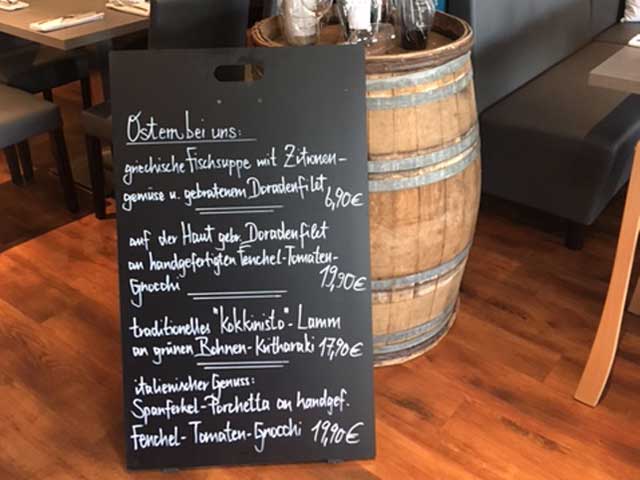 Ostern bei uns:
griechische Fischsuppe mit Zitronen-
gemüse u. gebratenem Doradenfilet 6,90€
auf der Haut gebr. Doradenfilet
an handgefertigten Fenchel-Tomaten-
Gnocchi 19,90€
traditionelles "Kokkinisto"-Lamm
an grünen Bohnen-Kritharaki 17,90€
italienischer Genuss:
Spanferkel-Porchetta an handgef.
Fenchel-Tomaten-Gnocchi 19,90€